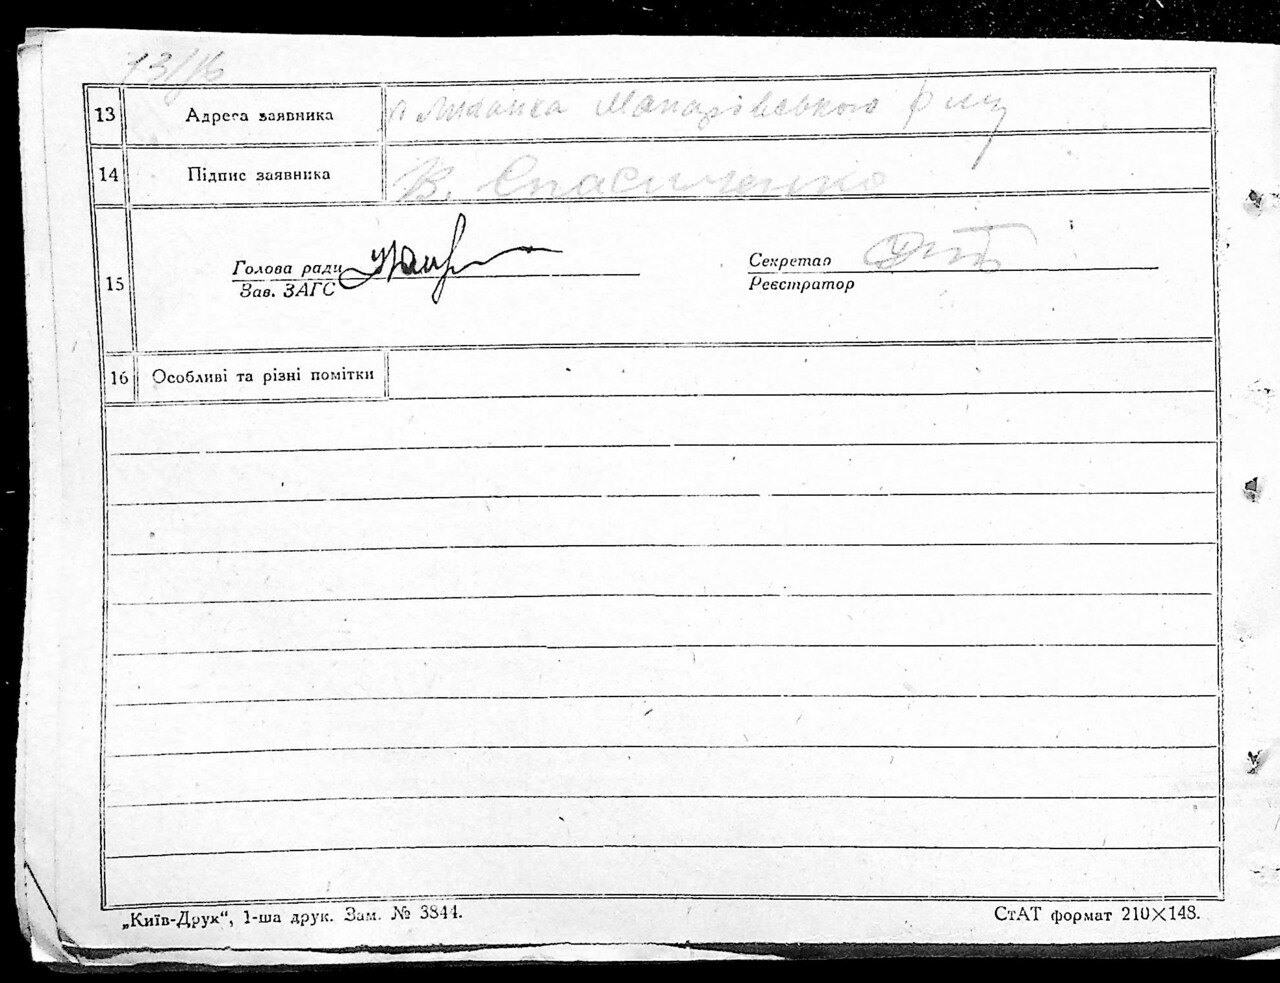 13/16
13 Адреса заявника Макарівського р
14 Підпис заявника В. Спасиченко
15
Голова ради Секретар
Зав. ЗАГС Реєстратор
16 Особливі та різні помітки
„Київ-Друк“, 1-ша друк. Зам. № 3844. СтАТ формат 210×148.